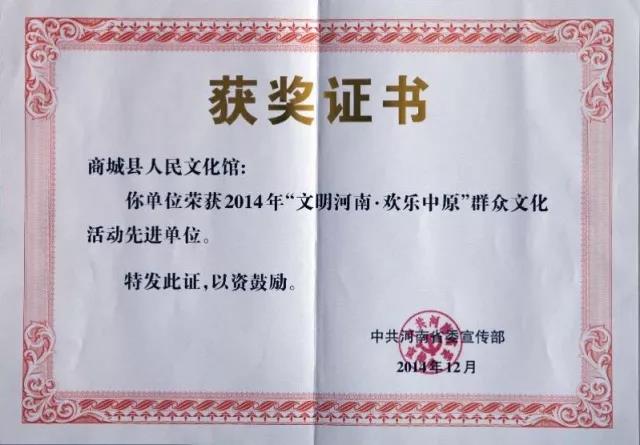 获奖证书
商城县人民文化馆:
你单位荣获2014年“文明河南·欢乐中原”群众文化
活动先进单位。
特发此证,以资鼓励。
中共河南省委宣传部
2014年12月